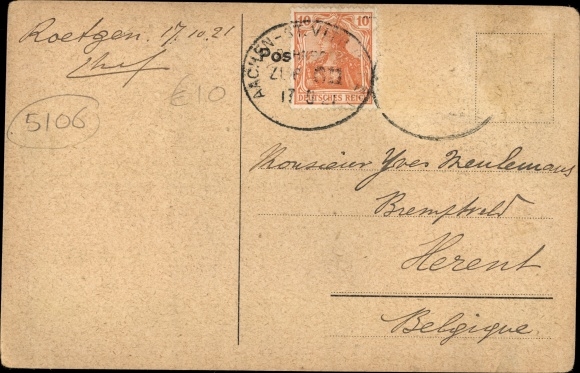 Roetgen. 17.10.21
€10
5106
10 10
DEUTSCHES REICH
AACHEN-ST.VI
ZUG
17
Monsieur Yves Meulemans
Herent
Belgique.